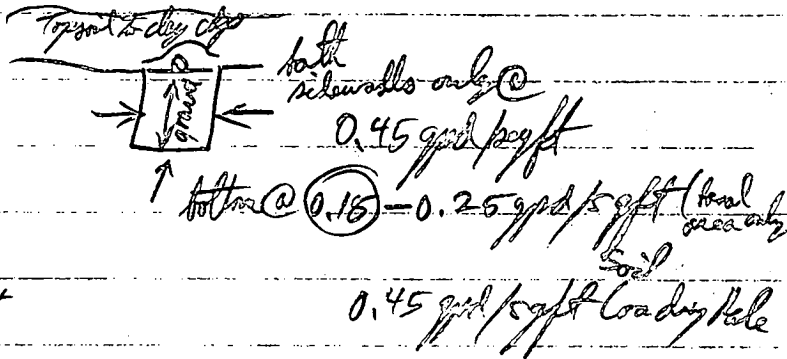 Topsoil to
both
gravel
sidewalls only @
0.45 gpd/sqft
bottom @ 0.18 - 0.25 gpd/sqft (total
area only
Soil
0.45 gpd/sqft Loading Rate